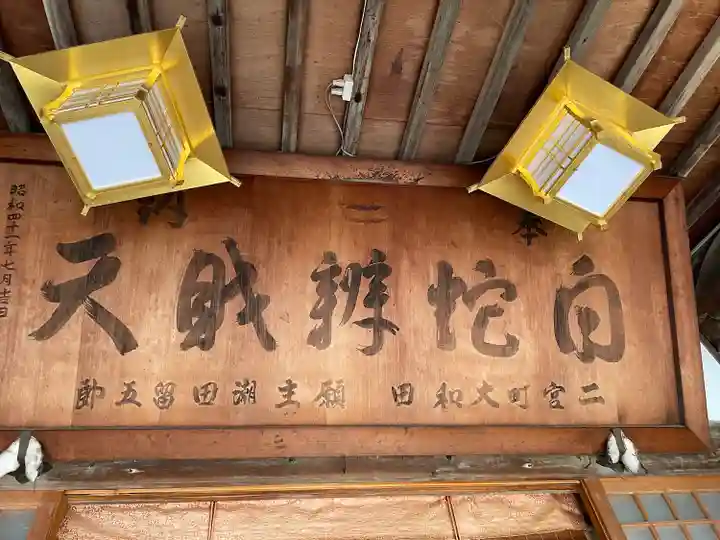 本 二
白蛇辨財天
二宮町大和田 願主潮田留五郎
昭和四十一年七月吉日